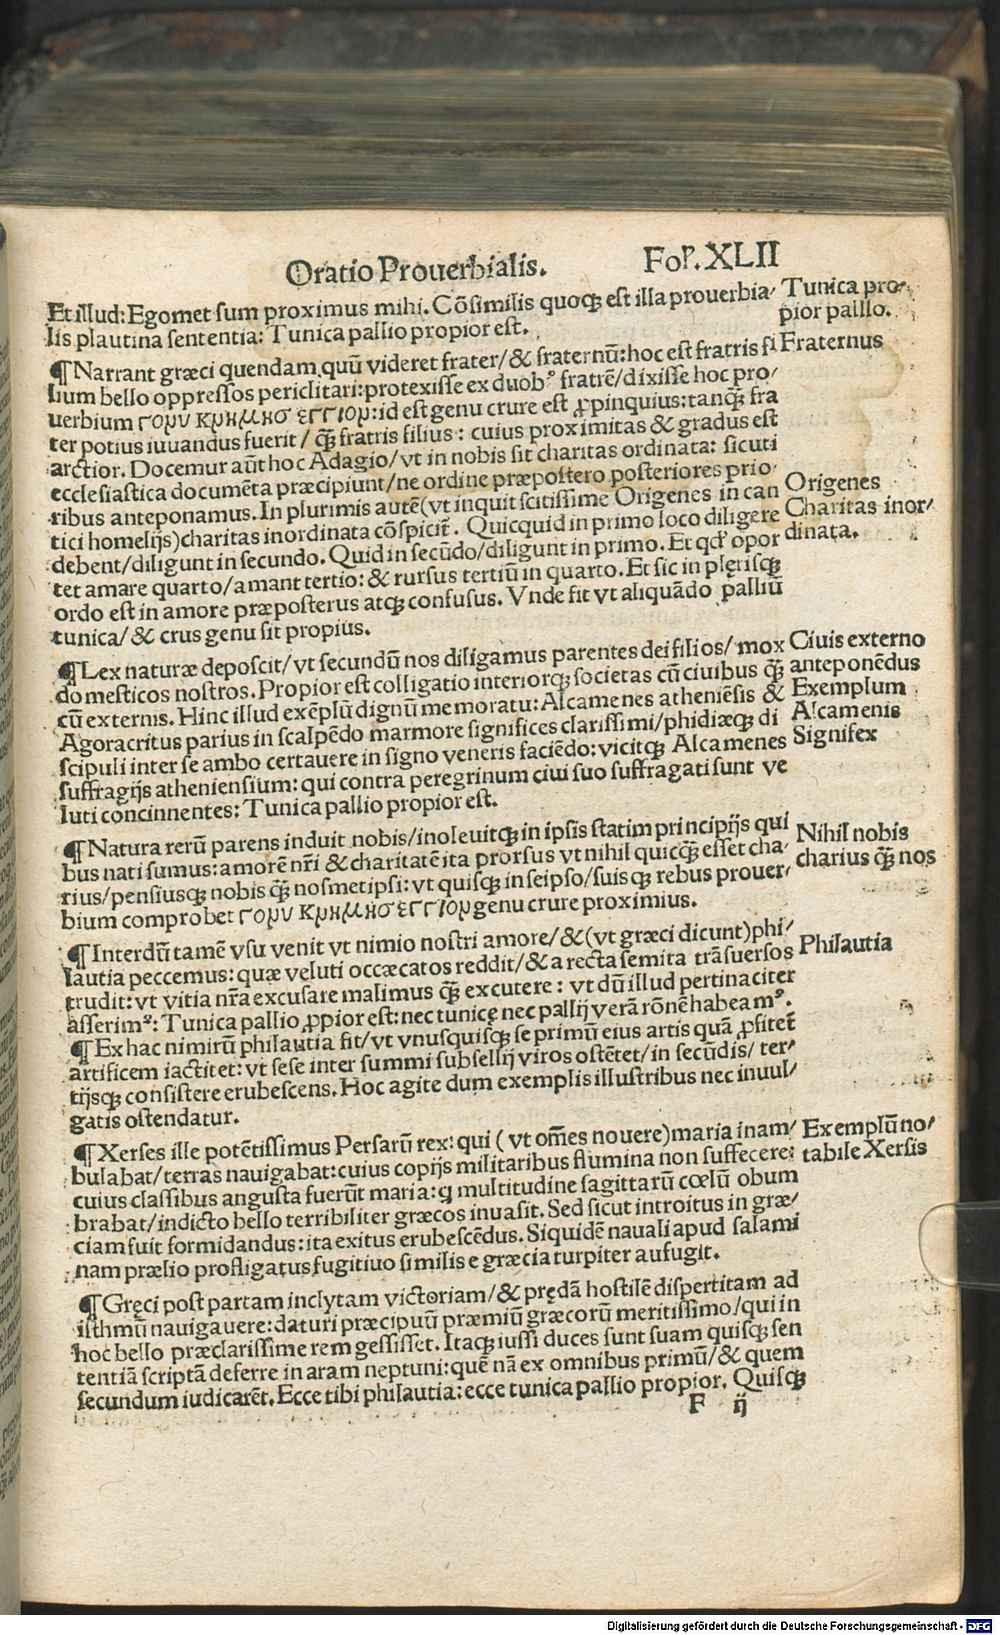 Oratio Prouerbialis. Foꝉ. XLII
Et illud: Egomet sum proximus mihi. Cõsimilis quoqꝫ est illa prouerbia/
lis plautina sententia: Tunica pallio propior est.
Tunica pro/
pior palllo.
¶ Narrant græci quendam, quũ videret frater/& fraternũ: hoc est fratris fi
lium bello oppressos periclitari: protexisse ex duobꝰ fratrẽ/dixisse hoc pro/
uerbium γονυ κνημησ εγγιον: id est genu crure est ꝓpinquius: tanqꝫ̃ fra
ter potius iuuandus fuerit / qꝫ̃ fratris filius: cuius proximitas & gradus est
arctior. Docemur aũt hoc Adagio/vt in nobis sit charitas ordinata: sicuti
ecclesiastica documẽta præcipiunt/ne ordine præpostero posteriores prio/
ribus anteponamus. In plurimis autẽ(vt inquit scitissime Origenes in can
tici homelijs)charitas inordinata cõspicit̃. Quicquid in primo loco diligere
debent/diligunt in secundo. Quid in secũdo/diligunt in primo. Et qđ opor
tet amare quarto/amant tertio: & rursus tertiũ in quarto. Et sic in plęrisqꝫ
ordo est in amore præposterus atqꝫ confusus. Vnde fit vt aliquãdo palliũ
tunica/& crus genu sit propius.
Fraternus
Origenes
Charitas inor/
dinata.
¶ Lex naturæ deposcit/vt secundũ nos diligamus parentes dei filios/mox
domesticos nostros. Propior est colligatio interiorqꝫ societas cũ ciuibus qꝫ̃
cũ externis. Hinc illud exẽplũ dignũ memoratu: Alcamenes atheniẽsis &
Agoracritus parius in scalpẽdo marmore significes clarissimi/phidiæqꝫ di
scipuli inter se ambo certauere in signo veneris faciẽdo: vicitqꝫ Alcamenes
suffragijs atheniensium: qui contra peregrinum ciui suo suffragati sunt ve
luti concinnentes: Tunica pallio propior est.
Ciuis externo
anteponẽdus
Exemplum
Alcamenis
Signifex
¶ Natura rerũ parens induit nobis/inoleuitqꝫ in ipsis statim principijs qui
bus nati sumus: amorẽ nr̃i & charitatẽ ita prorsus vt nihil quicqꝫ̃ esset cha/
rius/pensiusqꝫ nobis qꝫ̃ nosmetipsi: vt quisqꝫ in seipso/suisqꝫ rebus prouer/
bium comprobet γονυ κνημησ εγγιον genu crure proximius.
Nihil nobis
charius qꝫ̃ nos
¶ Interdũ tamẽ vsu venit vt nimio nostri amore/&(vt græci dicunt)phi/
lautia peccemus: quæ veluti occæcatos reddit/& a recta semita trãsuersos
trudit: vt vitia nr̃a excusare malimus qꝫ̃ excutere: vt dũ illud pertinaciter
asserimꝰ: Tunica pallio ꝓpior est: nec tunicę nec pallij verã rõnẽ habeamꝰ.
Philautia
¶ Ex hac nimirũ philautia fit/vt vnusquisqꝫ se primũ eius artis quã ꝓfitet̃
artificem iactitet: vt sese inter summi subsellij viros ostẽtet/in secũdis/ter/
tijsqꝫ consistere erubescens. Hoc agite dum exemplis illustribus nec inuul/
gatis ostendatur.
¶ Xerses ille potẽtissimus Persarũ rex: qui (vt om̃es nouere)maria inam/
bulabat/terras nauigabat: cuius copijs militaribus flumina non suffecere:
cuius classibus angusta fuerũt maria: q̃ multitudine sagittarũ cœlũ obum
brabat/indicto bello terribiliter græcos inuasit. Sed sicut introitus in græ/
ciam fuit formidandus: ita exitus erubescẽdus. Siquidẽ nauali apud salami
nam prælio profligatus, fugitiuo similis e græcia turpiter aufugit.
Exemplũ no/
tabile Xersis
¶ Gręci post partam inclytam victoriam/& prędã hostilẽ dispertitam ad
isthmũ nauigauere: daturi præcipuũ præmiũ græcorũ meritissimo/qui in
hoc bello præclarissime rem gessisset. Itaqꝫ iussi duces sunt suam quisqꝫ sen
tentiã scriptã deferre in aram neptuni: quẽ nã ex omnibus primũ/& quem
secundum iudicarẽt. Ecce tibi philautia: ecce tunica pallio propior. Quisqꝫ
F ij
Digitalisierung gefördert durch die Deutsche Forschungsgemeinschaft - DFG